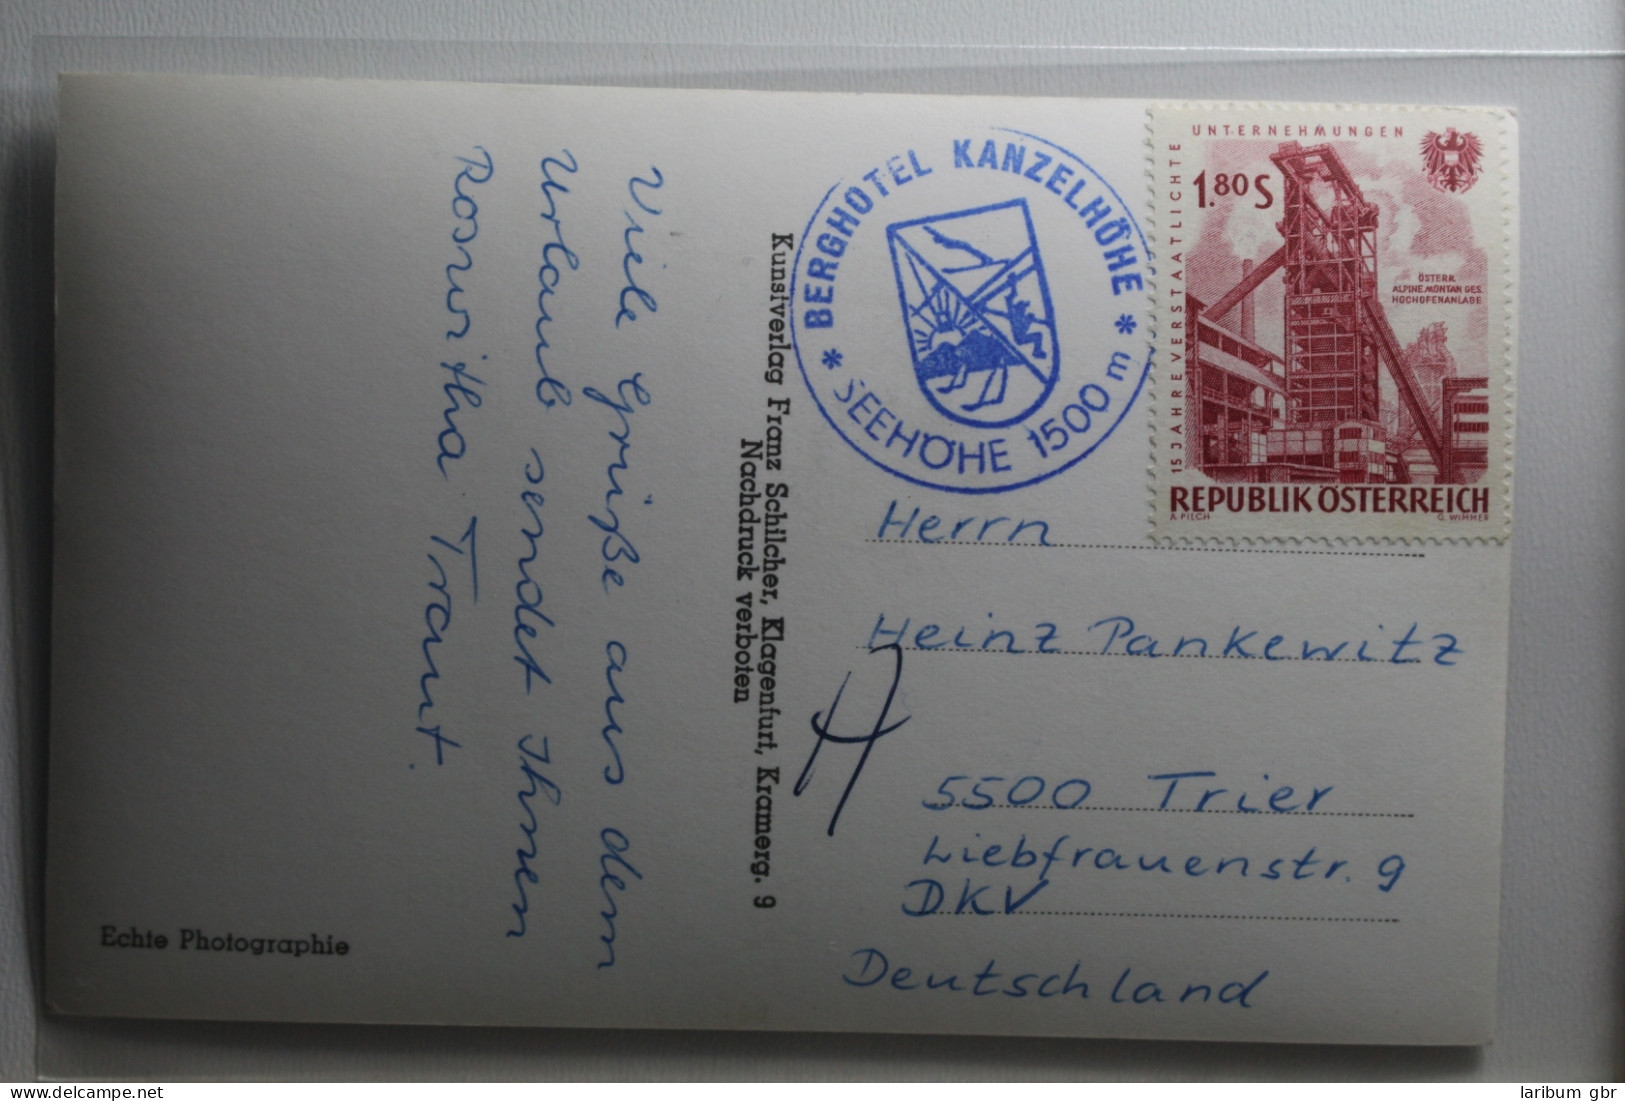 Viele Grüße aus dem
Urlaub sendet Ihnen
Roswitha Traut.
Echte Photographie
Kunstverlag Franz Schilcher, Klagenfurt, Kramerg. 9
Nachdruck verboten
* BERGHOTEL KANZELHÖHE *
SEEHÖHE 1500 m
15 JAHRE VERSTAATLICHTE
UNTERNEHMUNGEN
1.80 S
ÖSTERR.
ALPINE MONTAN GES.
HOCHOFENANLAGE
REPUBLIK ÖSTERREICH
A. PILCH G. WIMMER
Herrn
Heinz Pankewitz
5500 Trier
Liebfrauenstr. 9
DKV
Deutschland
www.delcampe.net
laribum gbr